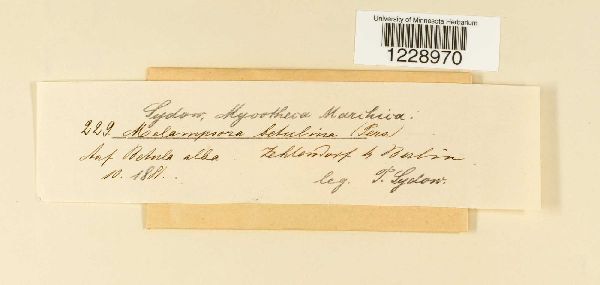 University of Minnesota Herbarium
1228970
Sydow, Mycotheca Marchica.
229 Melampsora betulina (Pers)
Auf Betula alba. Zehlendorf b. Berlin.
10. 1881.
leg. P. Sydow.